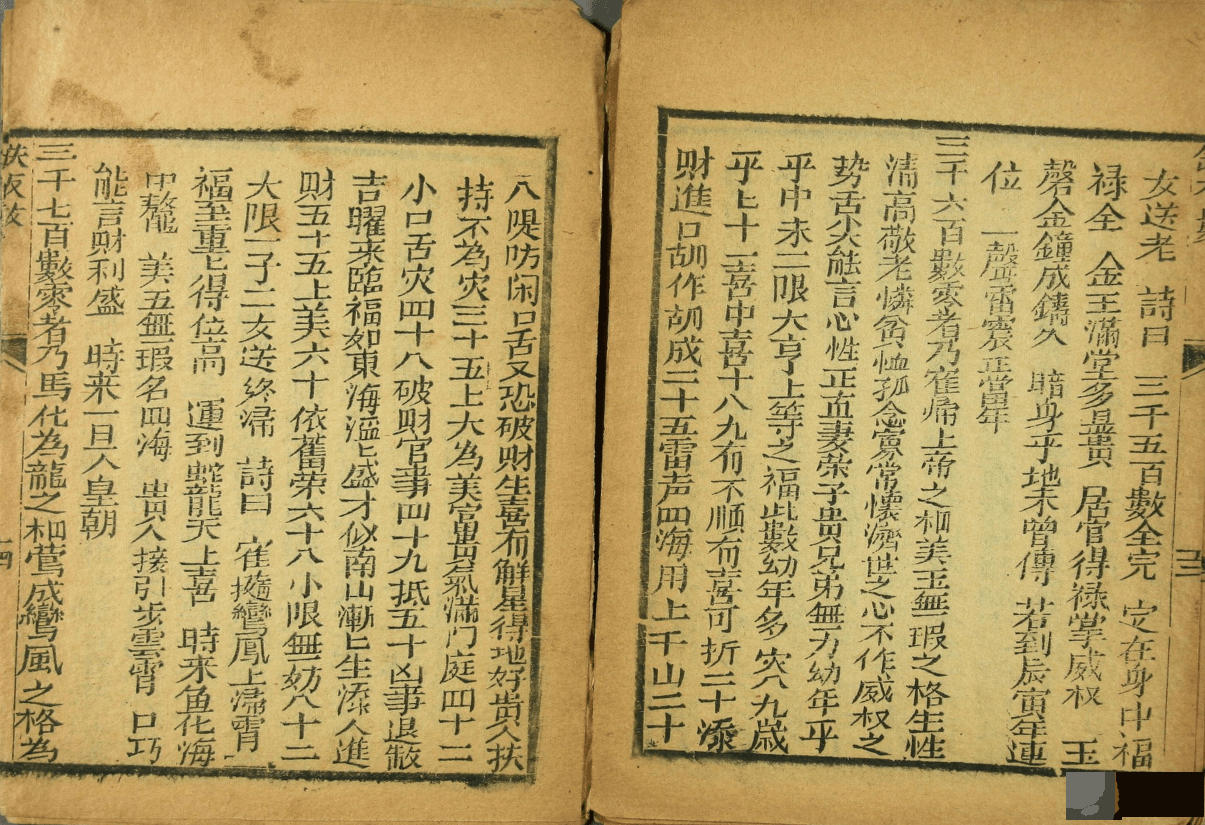 女送老 詩曰 三千五百數全完 定在身中福
禄全 金玉滿堂多昷貴 居官得禄掌威权 玉
磬金鐘成鑄久 暗身乎地未曾傳 若到辰寅年連
位 一聲雷震正當年
三千六百數零者乃寉帰上帝之相美玉無瑕之格生性
清高敬老憐貧恤孤念寡常懷濟世之心不作威权之
势舌尖能言心性正直妻荣子贵兄弟無力幼年乎
乎中未二限大亨上等之福此數幼年多灾八九歲
乎匕十一喜中喜十八九有不順有喜可折二十添
財進口胡作胡成二十五雷声四海用上千山二十
八隄防闲口舌又恐破財生喜有解星得地好貴人扶
持不為灾三十五上大為美富貴氣滿门庭四十二
小口舌灾四十八破財官事四十九抵五十凶事退散
吉曜来臨福如東海滔匕盛才似南山漸匕生添人進
財五十五上美六十依舊荣六十八小限無妨八十二
大限一子二女送終帰 詩曰 寉隨鸞鳳上帰霄 一
福至重匕得位高 運到蛇龍天上喜 時来鱼化海
中鰲 美玉無瑕名四海 貴人接引步雲霄 口巧
能言財利盛 時来一旦入皇朝
三千七百數零者乃馬化為龍之相鶯成鸞鳳之格為